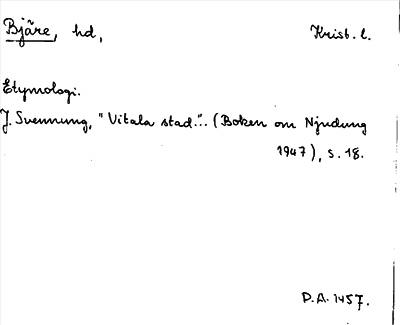 Bjäre, hd, Krist. l.
Etymologi.
J. Svennung, "Vitala stad.". (Boken om Njudung
1947), s. 18.
D.A. 1457.